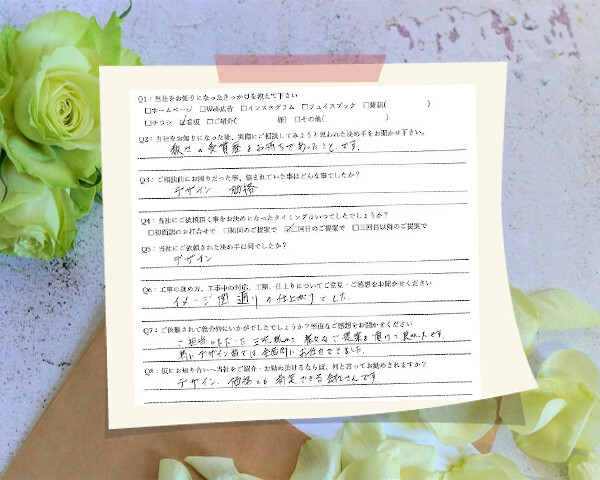 Q1：当社をお知りになったきっかけを教えて下さい
□ホームページ □Web広告 □インスタグラム □フェイスブック □雑誌( )
□チラシ ☑看板 □ご紹介( 様) □その他( )
Q2：当社をお知りになった後、実際にご相談してみようと思われた決め手をお聞かせ下さい。
数々の受賞歴をお持ちであったことです。
Q3：ご相談前にお困りだった事、悩まれていた事はどんな事でしたか？
デザイン 価格
Q4：当社にご依頼頂く事をお決めになったタイミングはいつでしたでしょうか？
□初面談のお打合せで □初回のご提案で ☑二回目のご提案で □三回目以降のご提案で
Q5：当社にご依頼された決め手は何でしたか？
デザイン
Q6：工事の進め方、工事中の対応、工期、仕上りについてご意見・ご感想をお聞かせください
イメージ図通りの仕上がりでした。
Q7：ご依頼されて総合的にいかがでしたでしょうか？率直なご感想をお聞かせください
ご担当いただいた 様々なご提案を頂けて良かったです
特にデザイン面では全面的にお任せできました。
Q8：仮にお知り合いへ当社をご紹介・お勧め頂けるならば、何と言ってお勧めされますか？
デザイン、価格とも 満足できる会社さんです